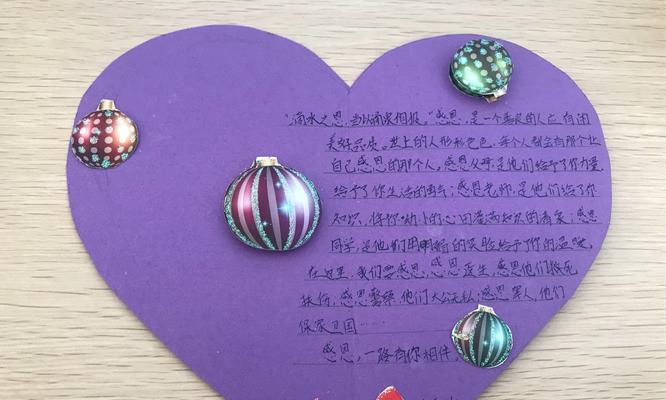 “滴水之恩，当以涌泉相报。”感恩，是一个善良的人应有的
美好品质。世上的人形形色色，每个人都会有那个让
自己感恩的那个人。感恩父母，是他们给予了你力量，
给予了你生活的勇气；感恩老师，是他们给了你
知识，使你幼小的心田灌满知识的清泉；感恩
同学，是他们用明媚的笑脸给予了你的温暖。
在这里，我们要感恩，感恩医生，感恩他们救死
扶伤，感恩警察，他们大公无私；感恩军人，他们
保家卫国……
感恩，一路有你相伴。